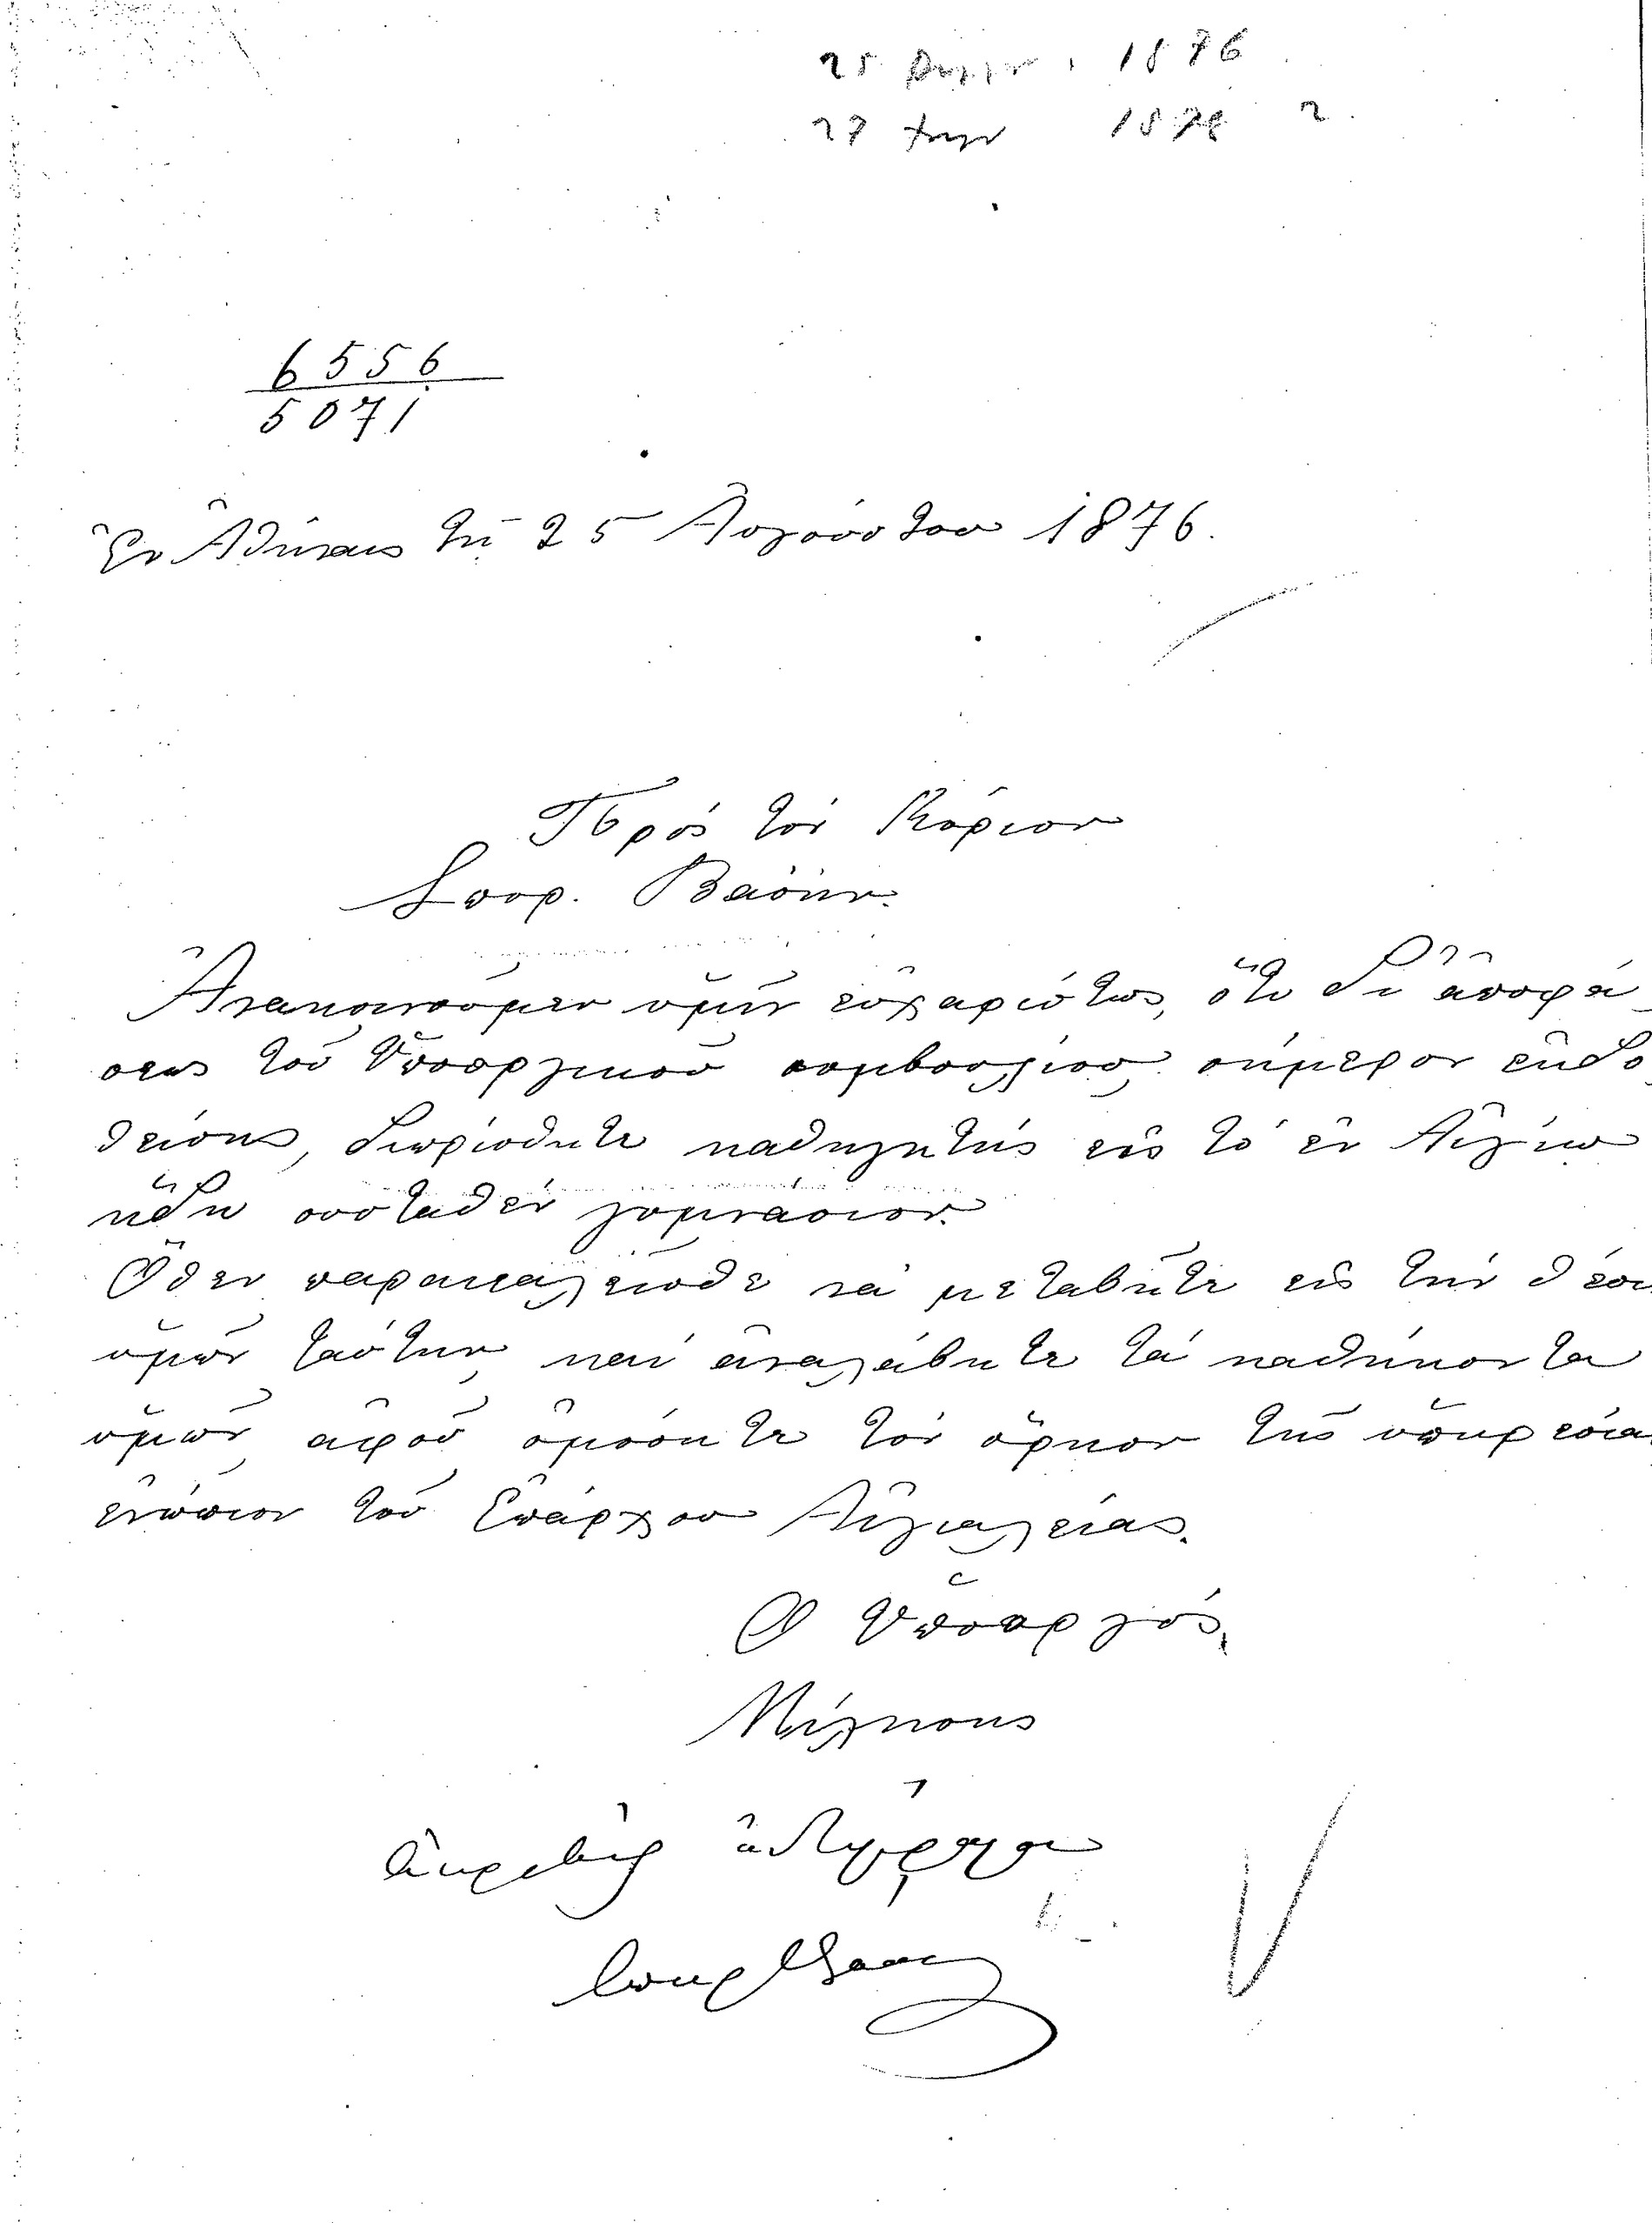 25 1876
27 187
6556
5071
Ἐν Ἀθήναις τῇ 25 Αὐγούστου 1876.
Πρός τόν Κύριον
Σπυρ. Βάσην.
Ἀνακοινοῦμεν ὑμῖν εὐχαρίστως, ὅτι δι' ἀποφά
σεως τοῦ Ὑπουργικοῦ συμβουλίου σήμερον ἐκδο
θείσης, διωρίσθητε καθηγητής εἰς τό ἐν Αἰγίῳ
ἤδη συσταθέν γυμνάσιον.
Ὅθεν παρακαλεῖσθε νά μεταβῆτε εἰς τήν θέσι
ὑμῶν ταύτην καί ἀναλάβητε τά καθήκοντα
ὑμῶν ἀφοῦ ὀμόσητε τόν ὅρκον τῆς ὑπηρεσία
ἐνώπιον τοῦ Ἐπάρχου Αἰγιαλείας.
Ὁ Ὑπουργός
Μίλησης
Ἀκριβές ἀντίγραφον
Σπυρ Βάσης